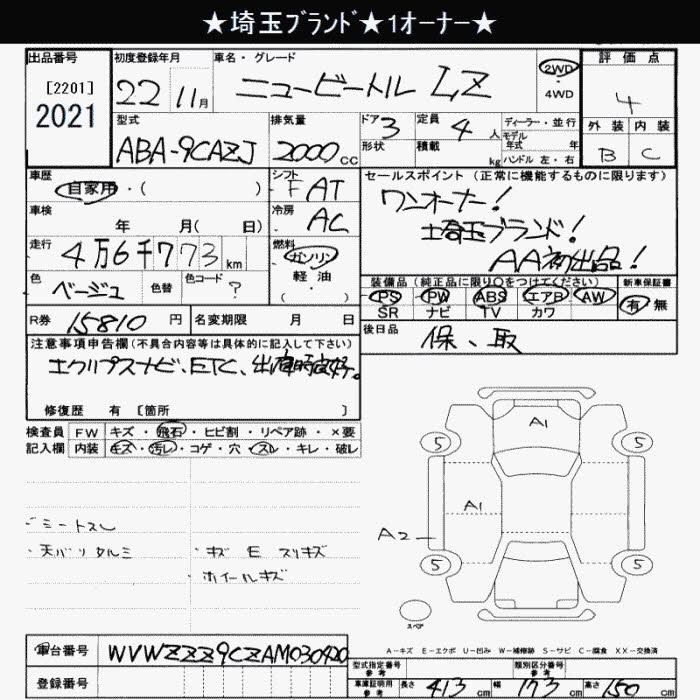 ★埼玉ブランド★1オーナー★
出品番号 [2201] 2021
初度登録年月 22 11月
車名・グレード ニュービートル LZ
2WD ・ 4WD
評価点 4
外装 B 内装 C
型式 ABA-9CAZJ
排気量 2000cc
ドア 3 形状
定員 4人 積載 kg
ディーラー・並行
モデル年式 年
ハンドル 左・右
車歴 自家用・( )
シフト F AT
車検 年 月( 日)
冷房 AC
走行 4万6千773km
燃料 ガソリン 軽・油 ・( )
色 ベージュ 色替 色コード ?
R券 15810円
名変期限 月 日
セールスポイント(正常に機能するものに限ります)
ワンオーナー!
埼玉ブランド!
AA初出品!
装備品(純正品に限り○をつけてください)
PS PW ABS エアB AW
SR ナビ TV カワ
新車保証書 有 無
後日品 保、取
注意事項申告欄(不具合内容等は具体的に記入して下さい)
エクリプスナビ、ETC、
修復歴 有 [箇所 ]
検査員 FW キズ・飛石・ヒビ割・リペア跡・×要
記入欄 内装 キズ・汚レ・コゲ・穴・スレ・キレ・破レ
・シートスレ
・天バリタルミ ・キズ E スリキズ
・ホイールキズ
A1
5 5
A1
A2
5 5
スペア
A-キズ E-エクボ U-凹み W-補修跡 S-サビ C-腐食 XX-交換済
車台番号 WVWZZZ9CZAM030420
登録番号
型式指定番号 参考
類別区分番号 参考
車庫証明用 参考 長さ 413cm 幅 173cm 高さ 150cm